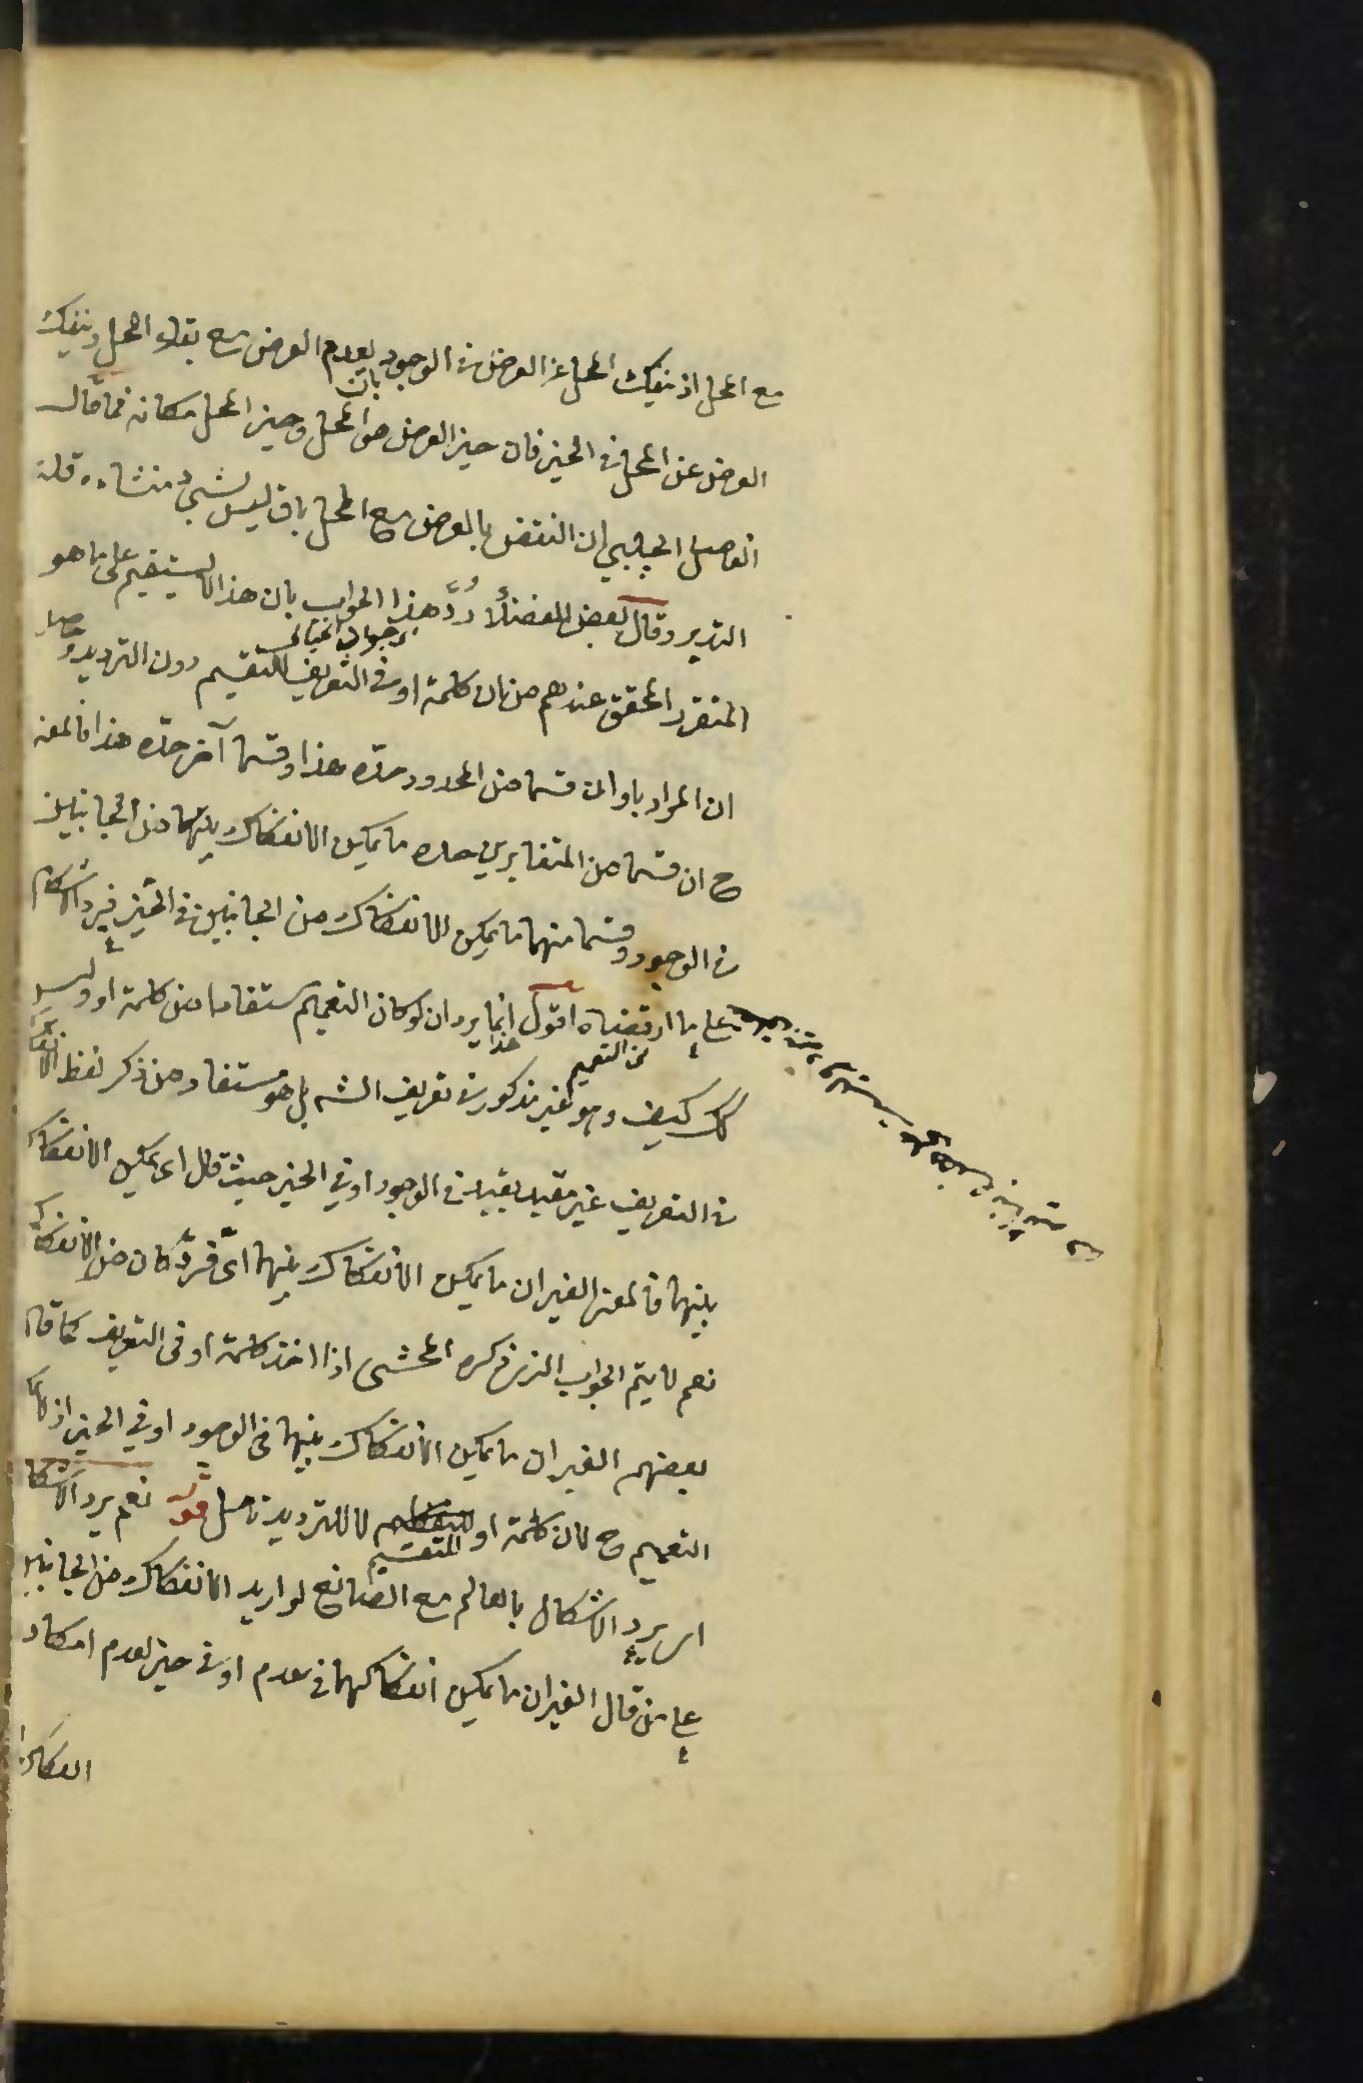 مع المحل اذ ينفك المحل عن العرض في الوجود بان يعدم العرض مع بقاء المحل وينفك
العرض عن المحل في الحيز فان حيز العرض هو المحل وحيز المحل مكانه فما قال
الفاضل الجلبي ان النقض بالعرض مع المحل باق ليس بشيء منشاءه قلة
التدبر وقال بعض الفضلاء رد هذا الجواب بان هذا لا يستقيم على ما هو
اي جواب الخيالي
المتقرر المحقق عندهم من ان كلمة او في التعريف للتقسيم دون الترديد وحاصله
ان المراد باو ان قسما من المحدود حده هذا وقسما آخر حده هذا فالمعنى
ح ان قسما من المتغايرين حده ما يمكن الانفكاك بينهما من الجانبين
في الوجود وقسما منهما ما يمكن الانفكاك من الجانبين في الحيز فيرد الاشكال
على ما ارتضاه اقول انما يرد ان لو كان التعميم مستفادا من كلمة او وليس
هذا من التعميم
كك كيف وهو غير مذكور في تعريف الشه بل هو مستفاد من ذكر لفظ الانفكاك
في التعريف غير مقيد بقيد في الوجود او في الحيز حيث قال اي يمكن الانفكاك
بينهما فالمعنى الغيران ما يمكن الانفكاك بينهما اي فرد كان من الانفكاك
نعم لا يتم الجواب الذي ذكره المحشى اذا اخذ كلمة او في التعريف كما قال
بعضهم الغيران ما يمكن الانفكاك بينهما في الوجود او في الحيز اذ
التعميم ح لان كلمة او للتقسيم لا للترديد تأمل قوله نعم يرد الاشكال
اي يرد الاشكال بالعالم مع الصانع لو اريد الانفكاك من الجانبين
على من قال الغيران ما يمكن انفكاكهما في عدم او في حيز لعدم امكان
انفكاك